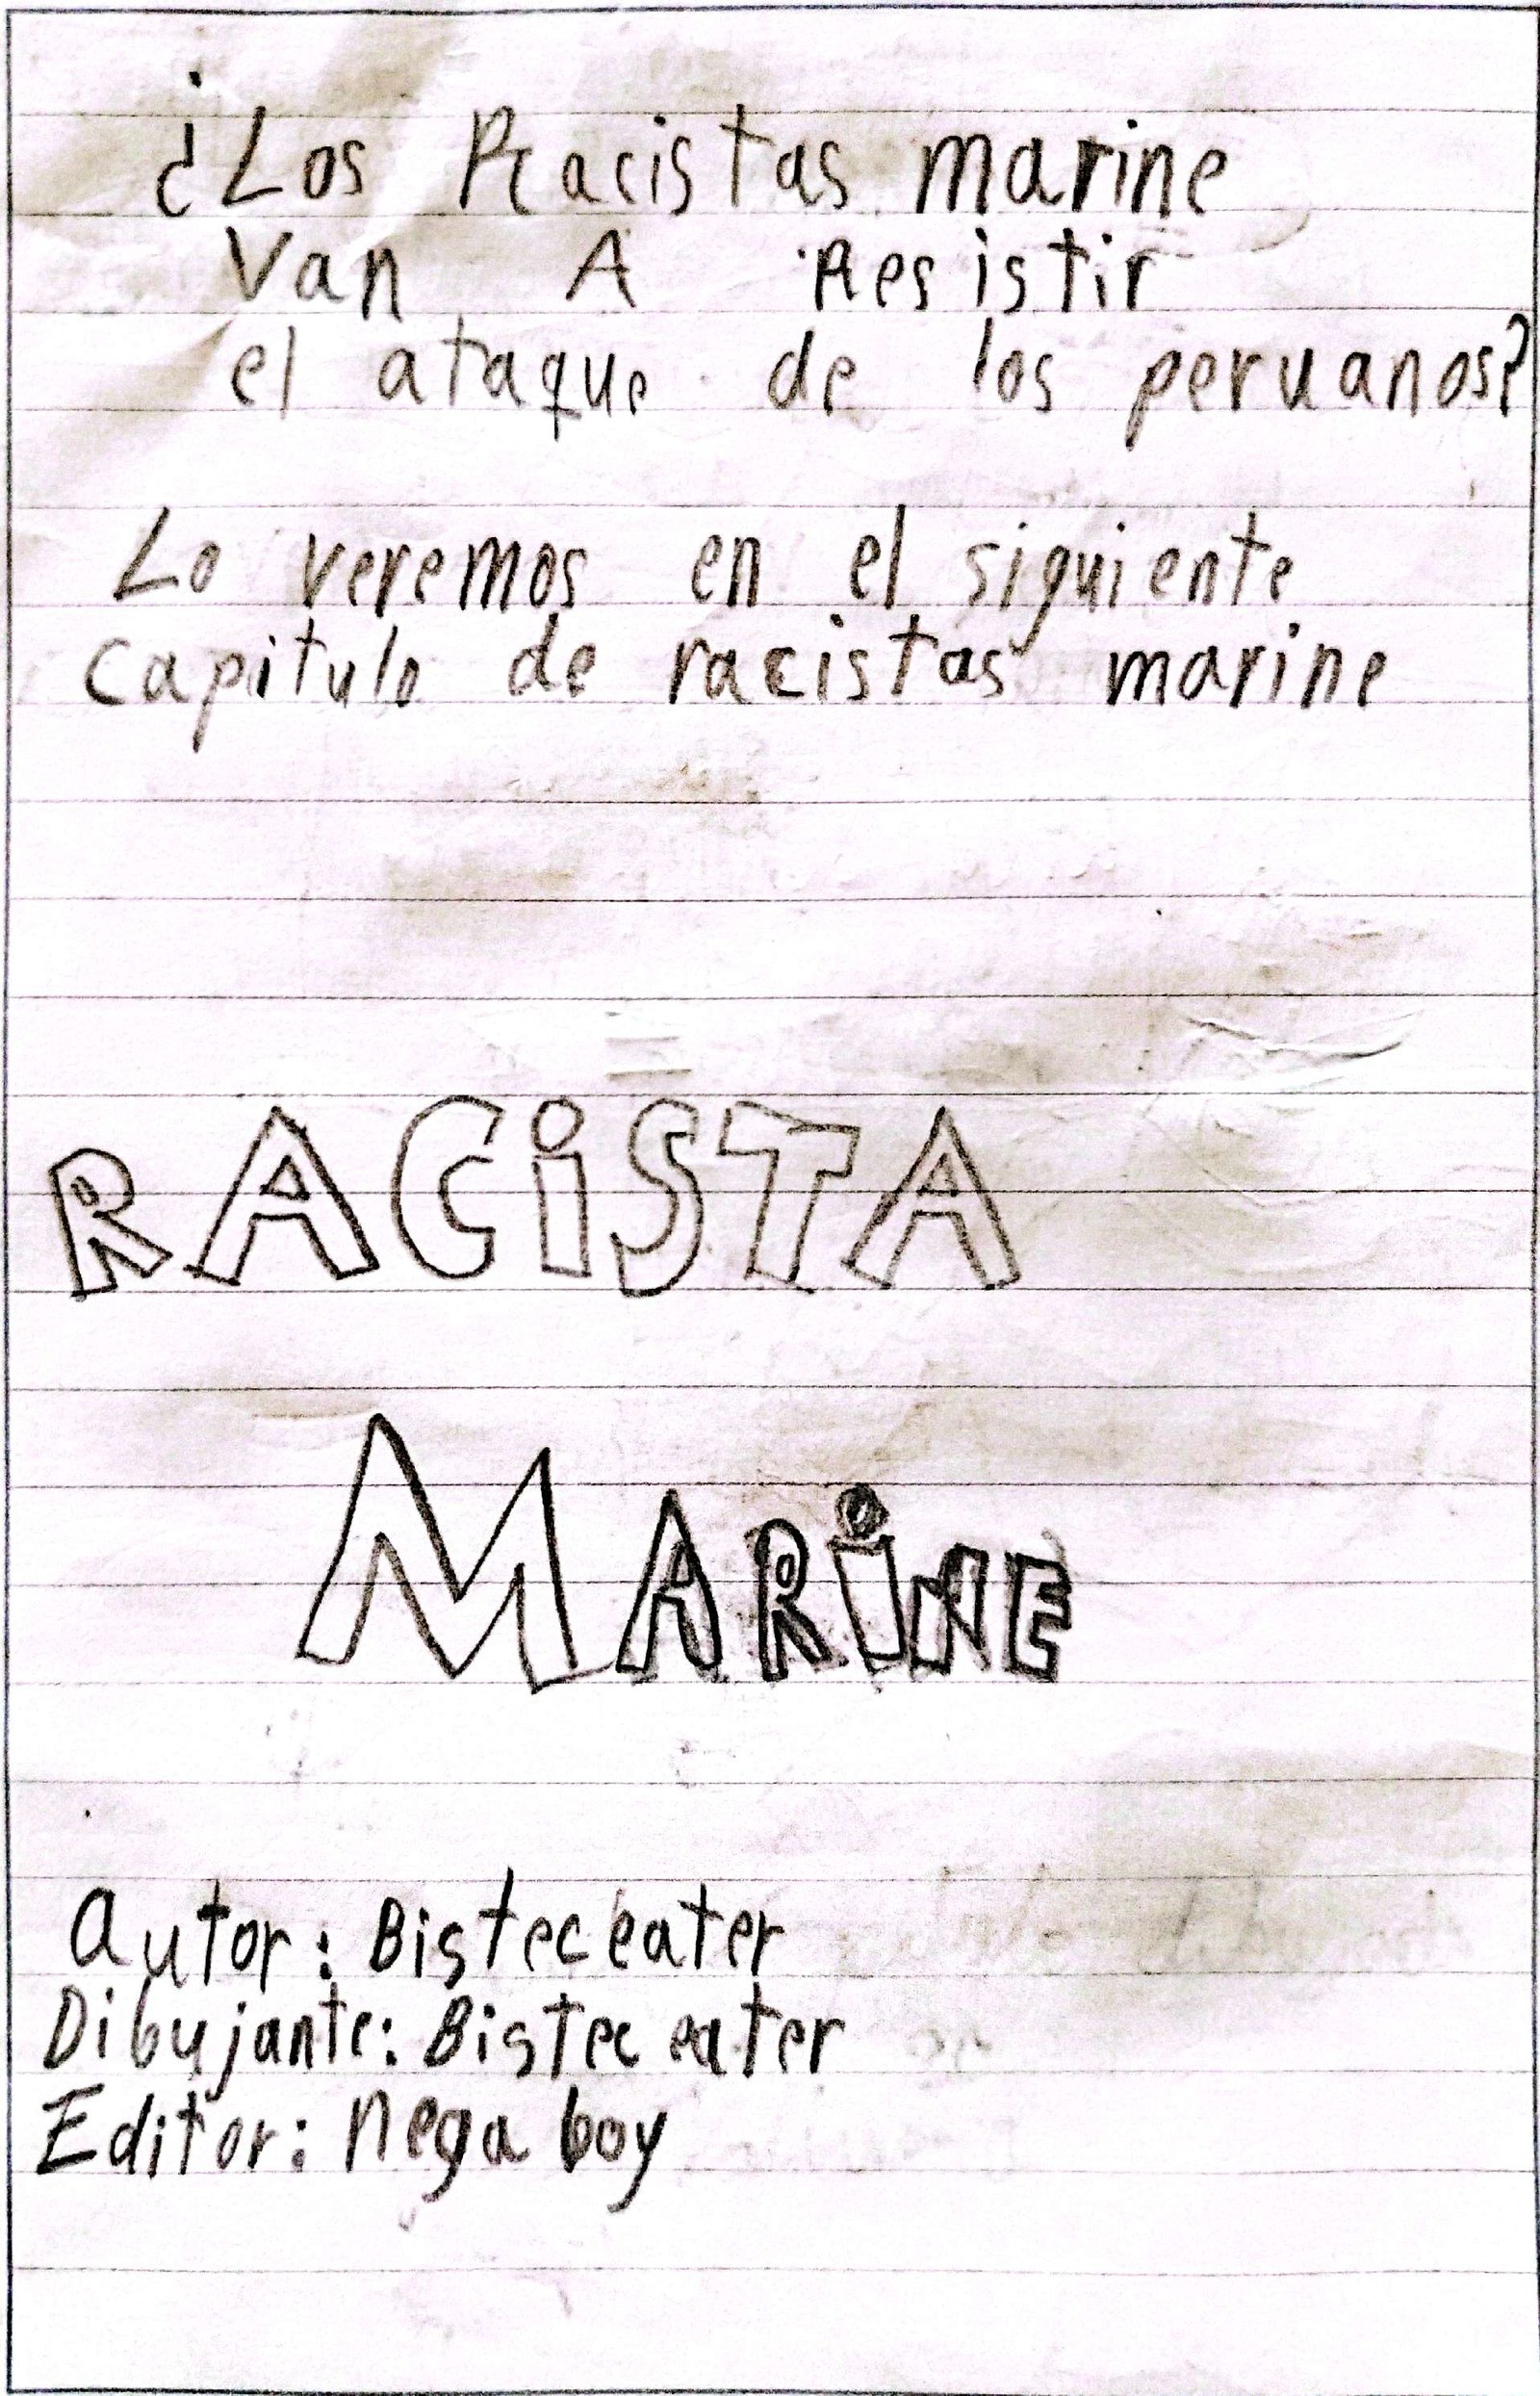 ¿Los Racistas marine
Van A Resistir
el ataque de los peruanos?
Lo veremos en el siguiente
capitulo de racistas marine
RACiSTA
MARiNE
autor: Bistec eater
Dibujante: Bistec eater
Editor: nega boy